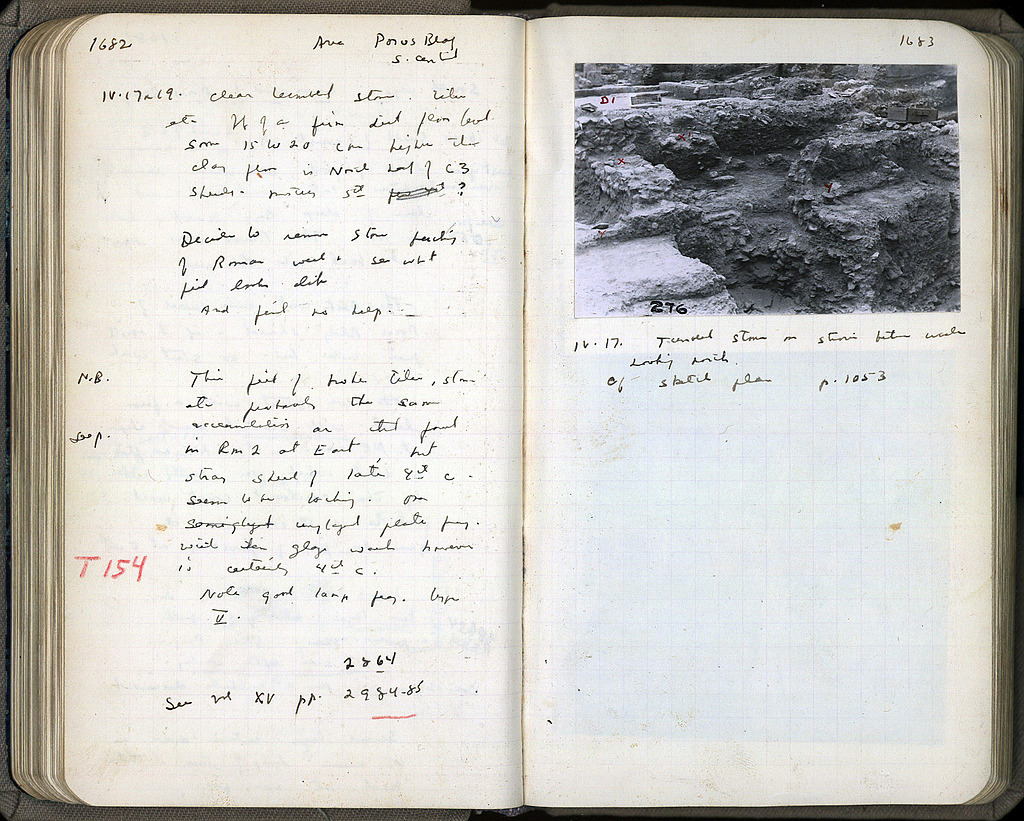 1682
Area Poros Bldg
S. Cent'l
IV.17~19. clear tumbled stone. tiles
etc. a firm dirt floor level
some 15 to 20 cm higher than
clay floor in North half of C3
sherds - 5th ?
Decide to remove stone packing
of Roman well & see what
fill looks like
And find no help.
N.B.
This fill of broken tiles, stone
etc probably the same
accumulation as that found
see p.
in Rm 2 at East, but
stray sherd of late 4th c.
seem to be lacking. One
semiglazed unglazed plate frag.
with thin glaze wash however
T 154
is certainly 4th c.
Note good lamp frag. type
V.
2864
See vol XV pp. 2984-85
1683
D1
X
X
Y
Y
276
IV.17. Tumbled stone
looking north.
Cf sketch plan p. 1053